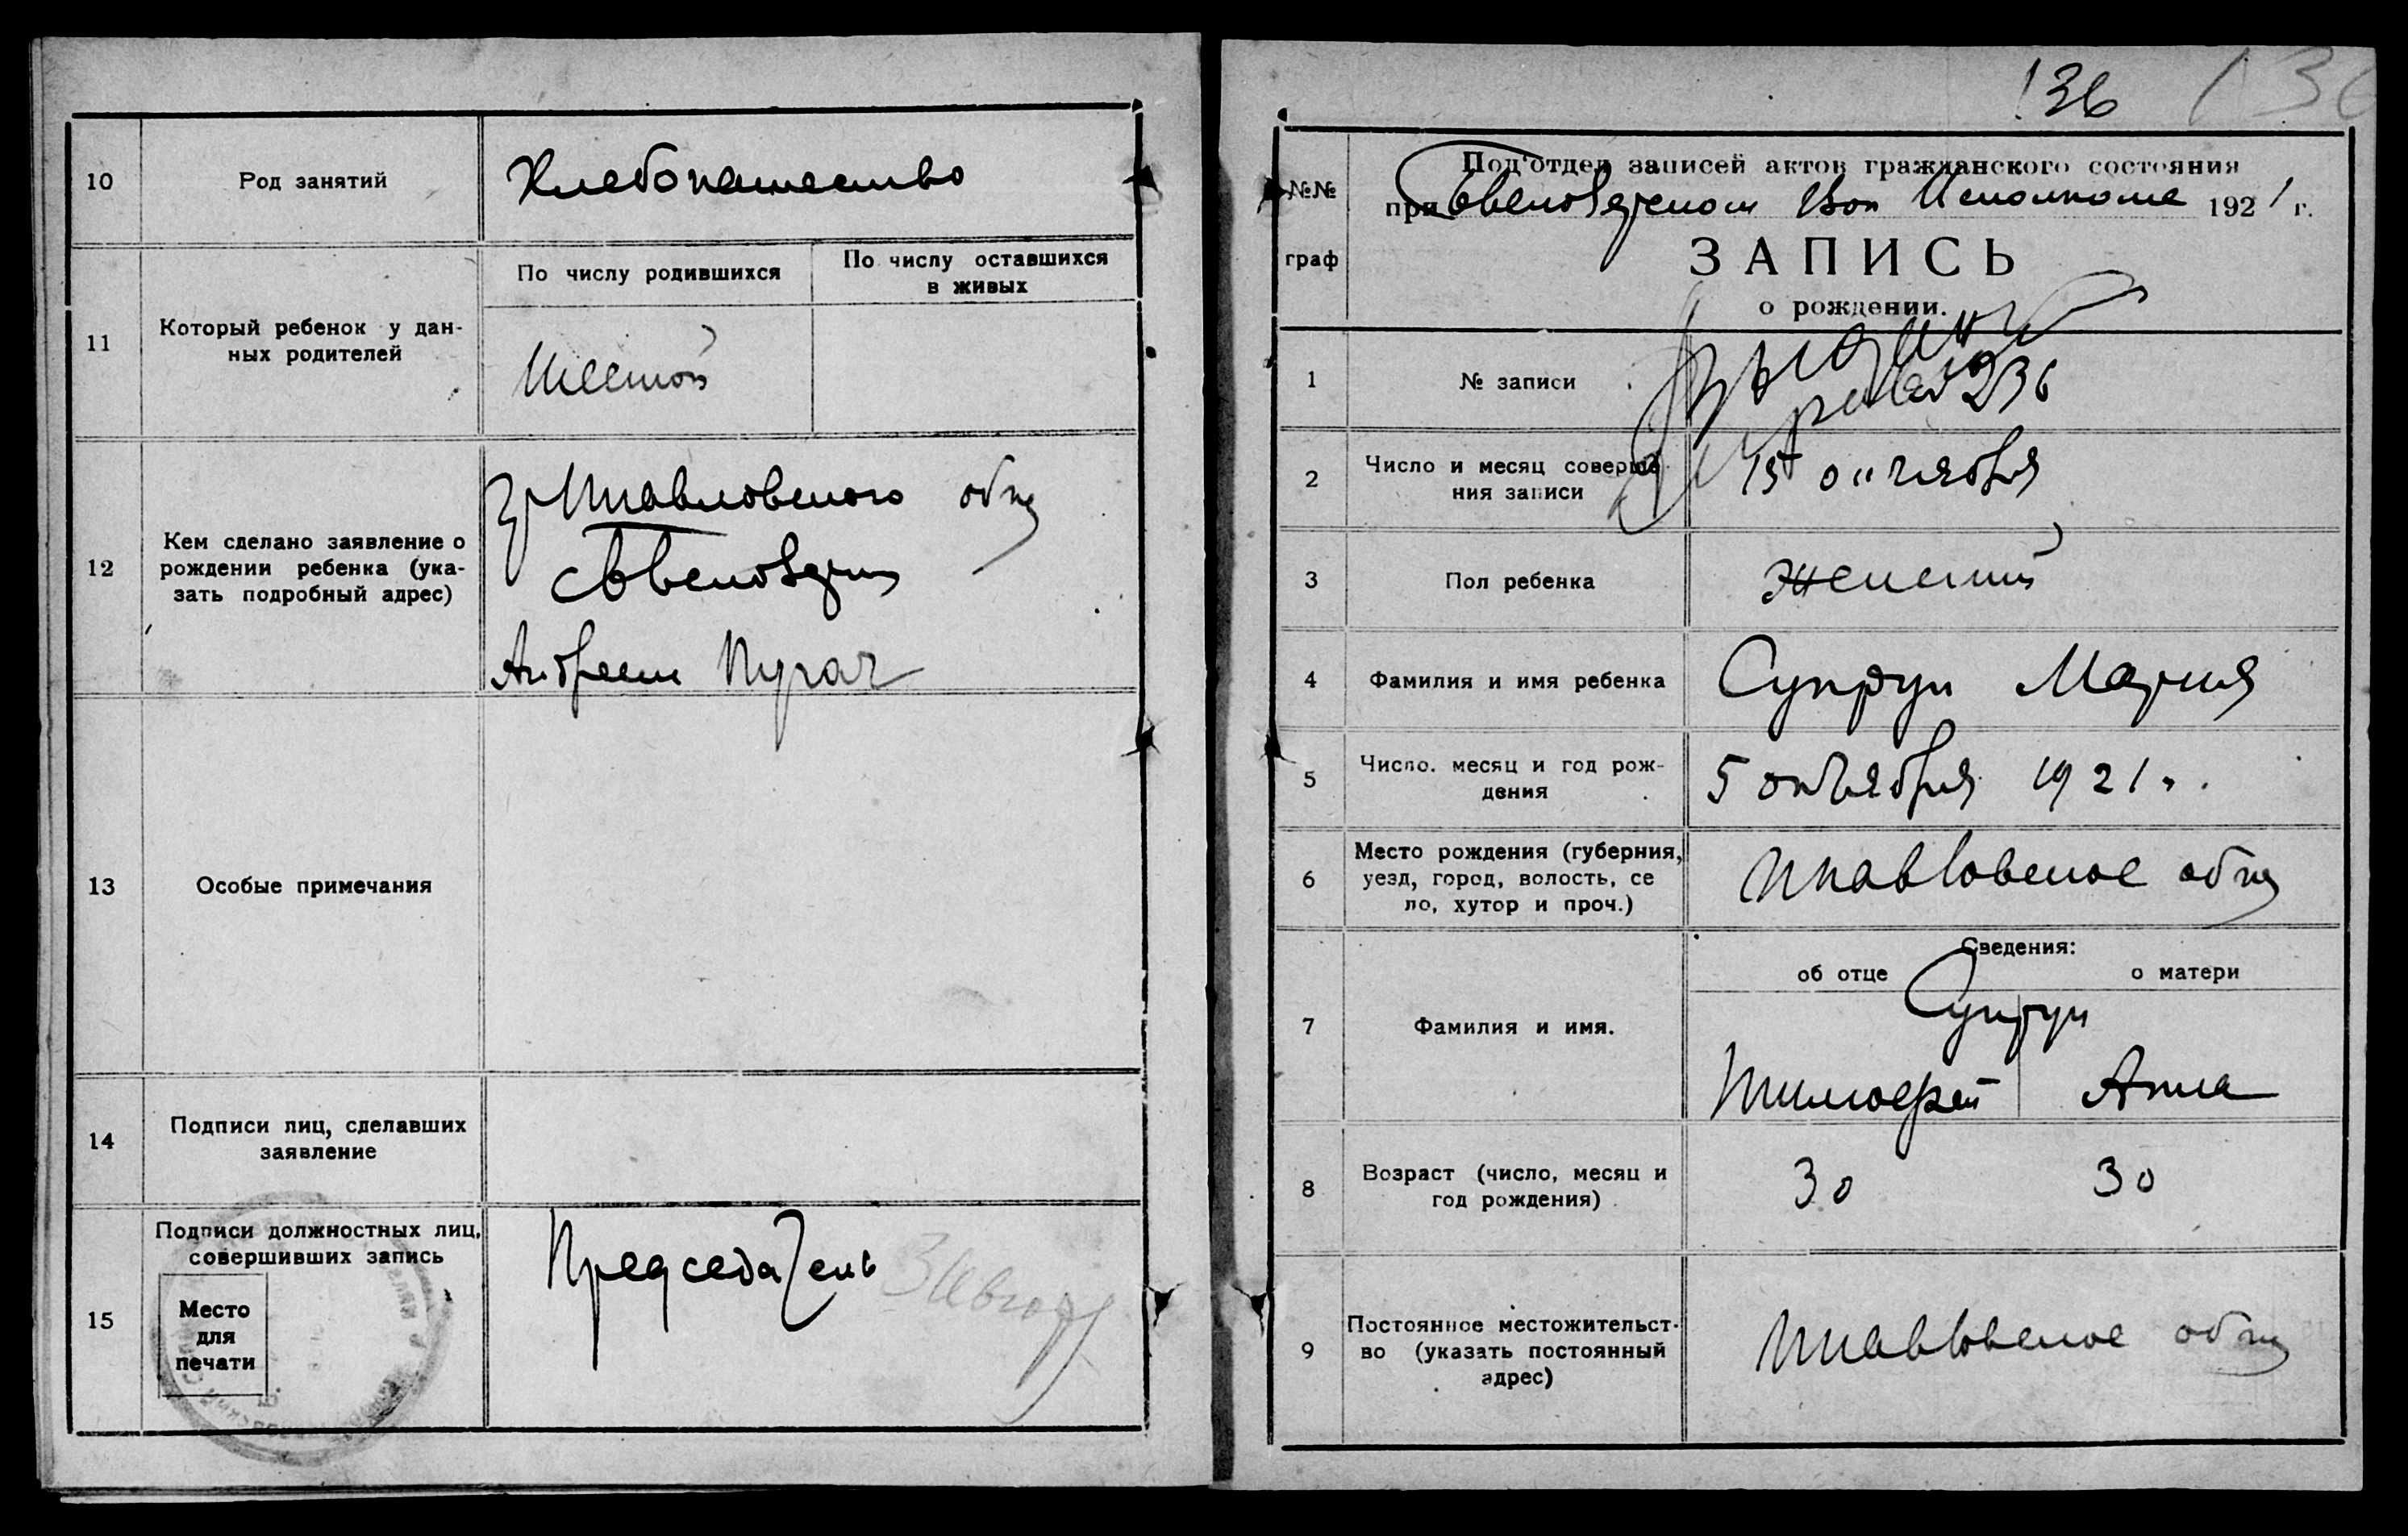 10
Род занятий
Хлебопашество
11
Который ребенок у дан-
ных родителей
По числу родившихся
По числу оставшихся
в живых
Шестой
12
Кем сделано заявление о
рождении ребенка (ука-
зать подробный адрес)
общ
Андреем Пугач
13
Особые примечания
14
Подписи лиц, сделавших
заявление
15
Подписи должностных лиц,
совершивших запись
Место
для
печати
Председатель
136
136
№№
граф
Под'отдел записей актов гражданского состояния
при Вол Исполкоме 1921 г.
ЗАПИСЬ
о рождении.
1
№ записи
236
2
Число и месяц соверше-
ния записи
15 октября
3
Пол ребенка
Женский
4
Фамилия и имя ребенка
Супрун Мария
5
Число, месяц и год рож-
дения
5 октября 1921 г.
6
Место рождения (губерния,
уезд, город, волость, се
ло, хутор и проч.)
общ
Сведения:
об отце
о матери
7
Фамилия и имя.
Супрун
Тимофей
Анна
8
Возраст (число, месяц и
год рождения)
30
30
9
Постоянное местожительст-
во (указать постоянный
адрес)
общ